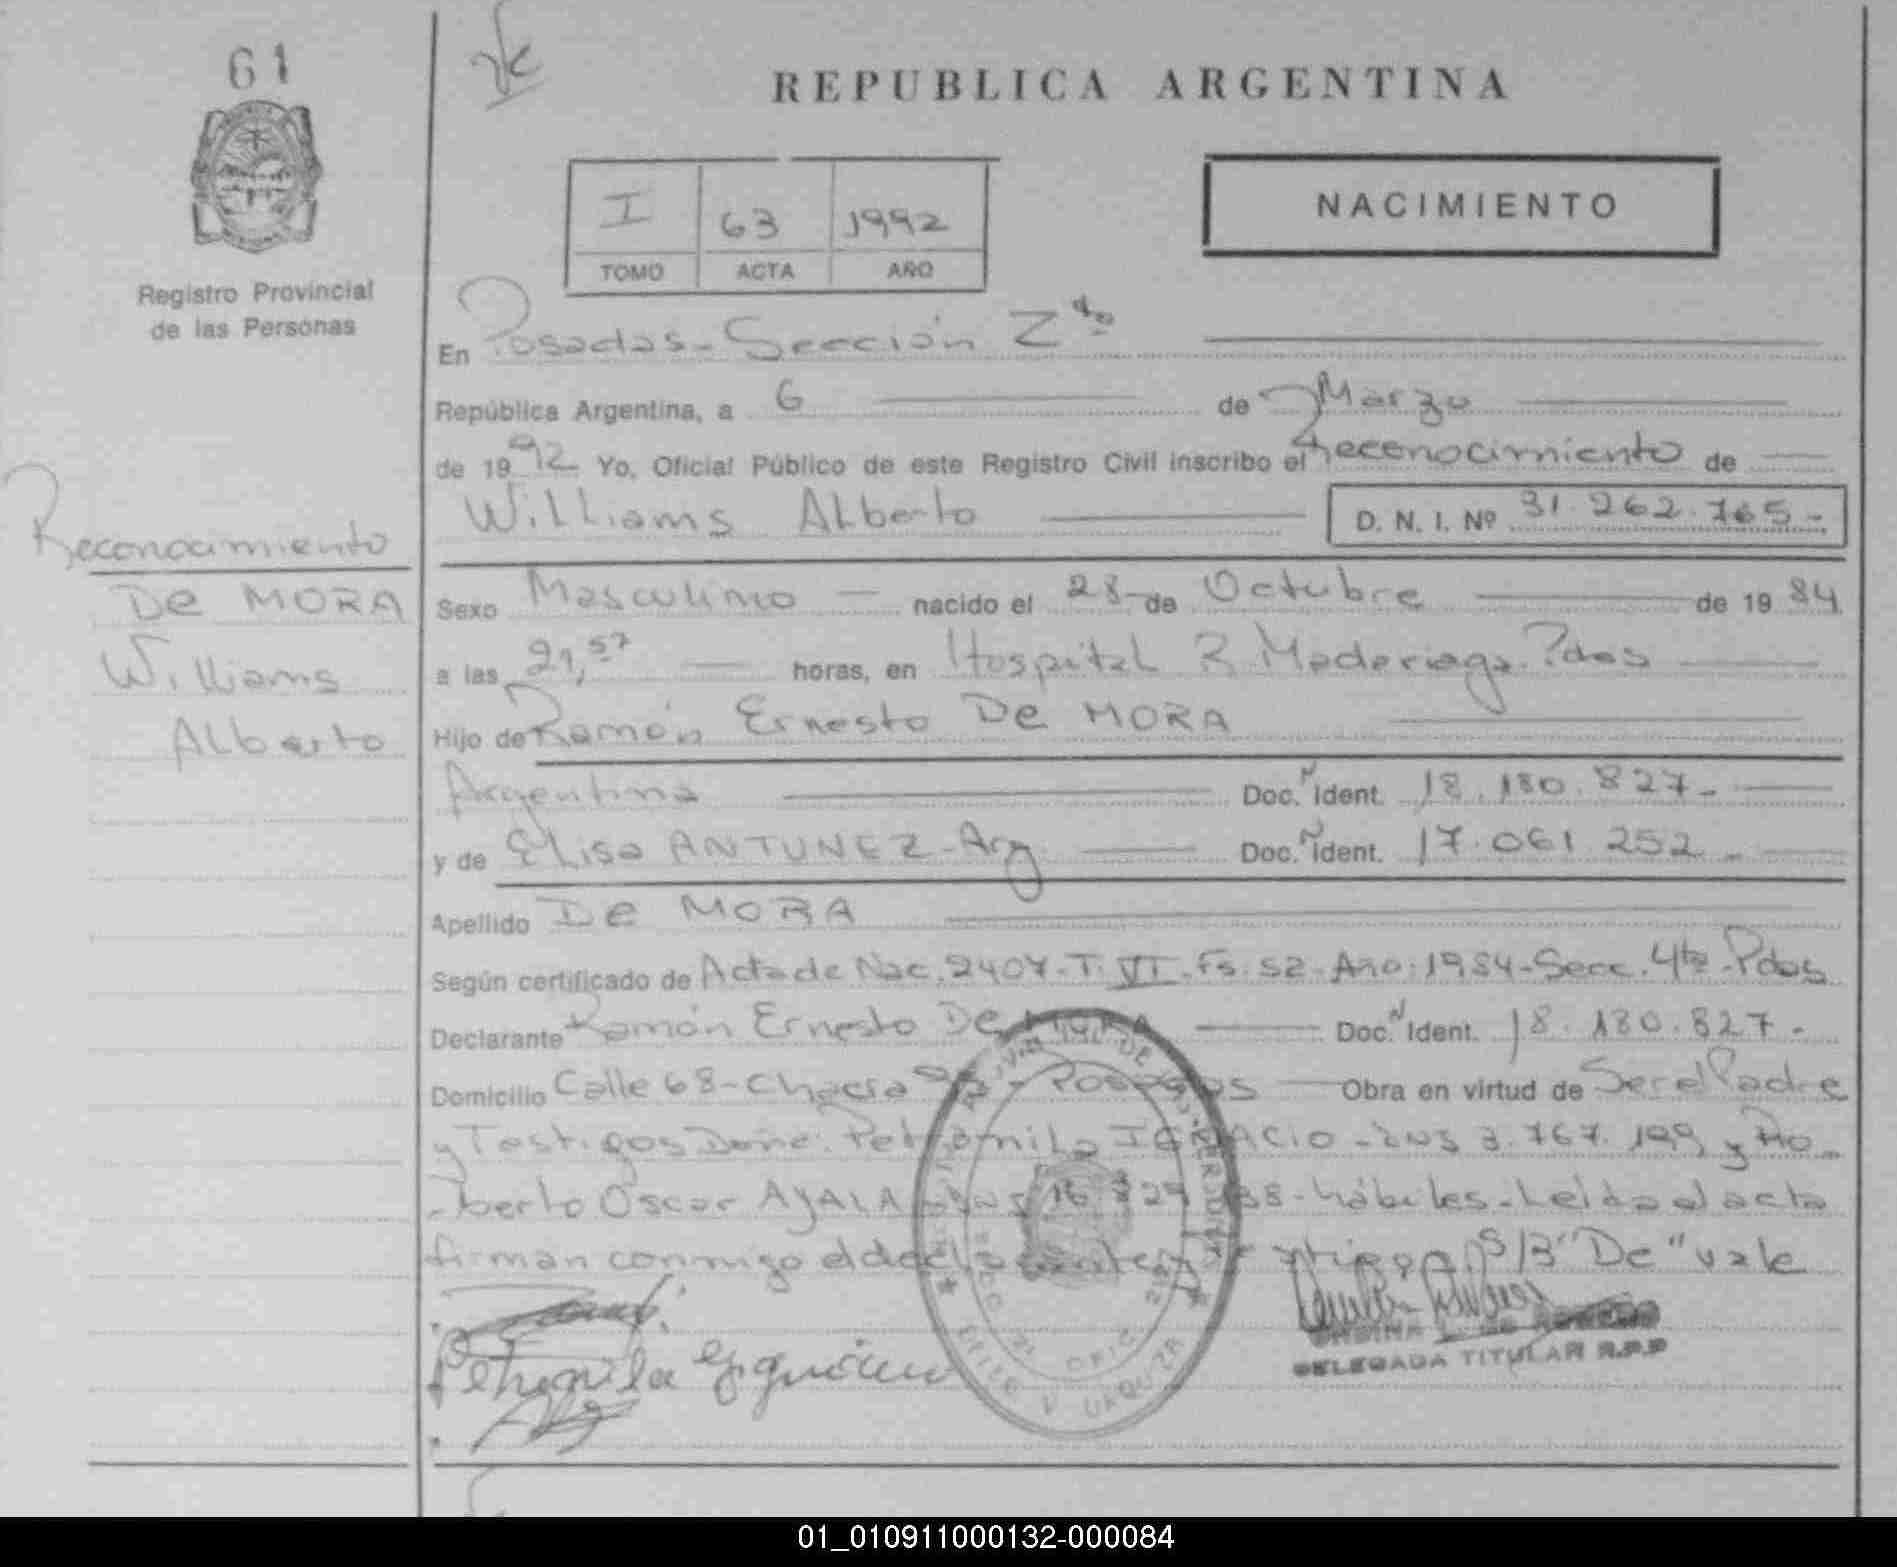 61
REPUBLICA ARGENTINA
NACIMIENTO
I 63 1992
TOMO ACTA AÑO
Registro Provincial
de las Personas
En Posadas - Sección
República Argentina, a 6 de Marzo
de 1992 Yo, Oficial Público de este Registro Civil inscribo el Reconocimiento de
Williams Alberto D. N. I. Nº 31.262.765.-
Reconocimiento
De MORA
Williams
Alberto
Sexo Masculino nacido el 28 de Octubre de 1984
a las 21,57 horas, en Hospital R. Madariaga. Pdas
Hijo de Ramón Ernesto De MORA
Argentina Doc. N Ident. 18.180.827.-
y de Elisa ANTUNEZ - Arg Doc. N Ident. 17.061.252.-
Apellido De MORA
Según certificado de Acta de Nac. 2407 - T. VI - Fs. 52 - Año: 1984 - Secc. 4ta - Pdas
Declarante Ramón Ernesto De MORA Doc. N Ident. 18.180.827.-
Domicilio Calle 68 - Chacra - Posadas Obra en virtud de Ser el Padre
y Testigos Doña: Petromila IGNACIO - 3.767.199 y Ro-
-berto Oscar AYALA - hábiles - Leída el acta
firman conmigo el declarante y testigos. S/B "De" vale
DELEGADA TITULAR R.P.P
DELEG. V. URQUIZA
OFIC.
01_010911000132-000084